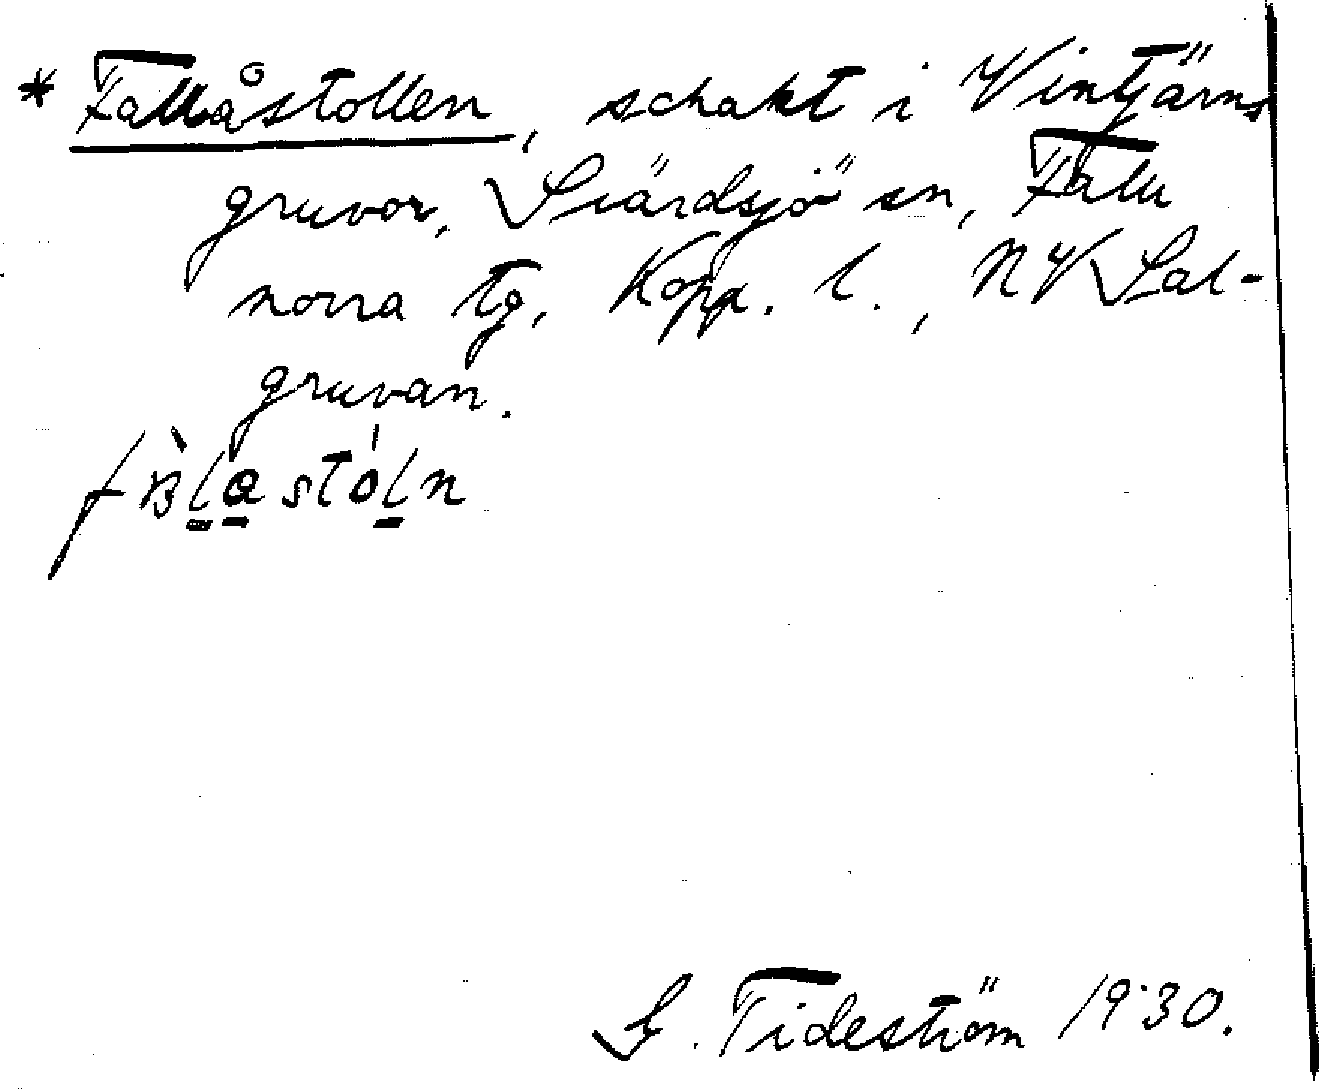 * Fallåstollen, schakt i Vintjärns
gruvor, Svärdsjö sn, Falu
norra tg, Kopp. l., NV Sal-
gruvan.
G. Tideström 1930.